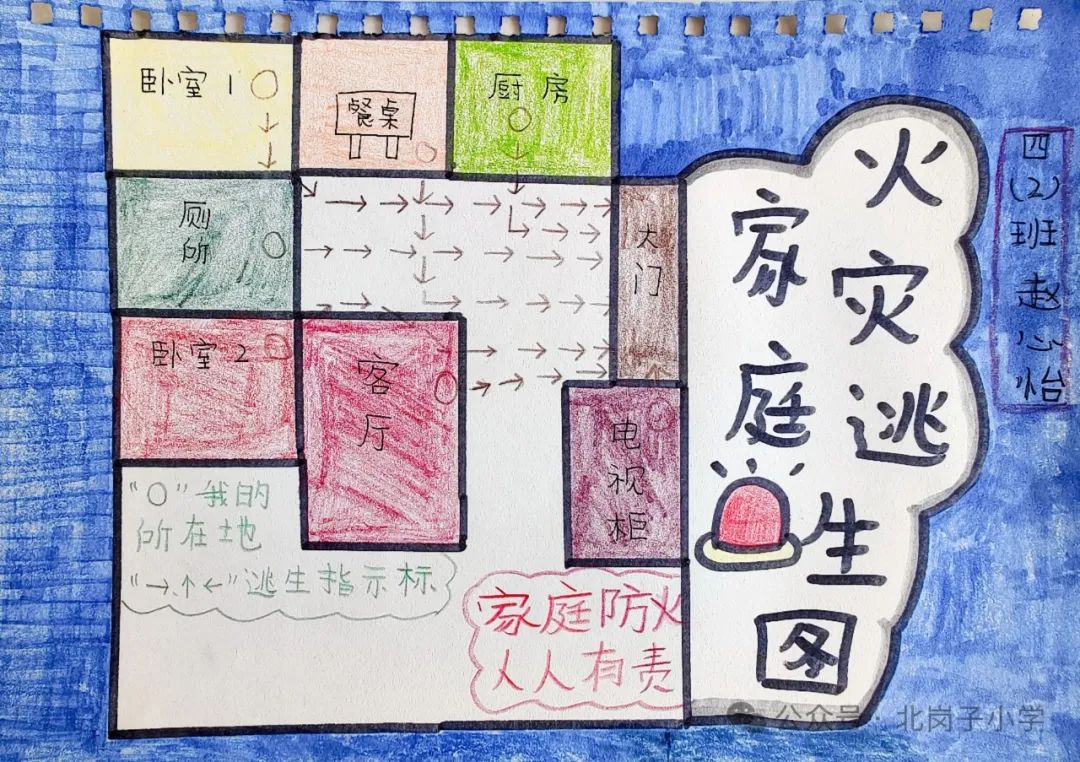 卧室1
餐桌
厨房
厕所
大门
卧室2
客厅
电视柜
"○"我的
所在地
"→.↑←"逃生指示标
家庭防火
人人有责
家庭
火灾逃生图
四(2)班 赵心怡
公众号·北岗子小学